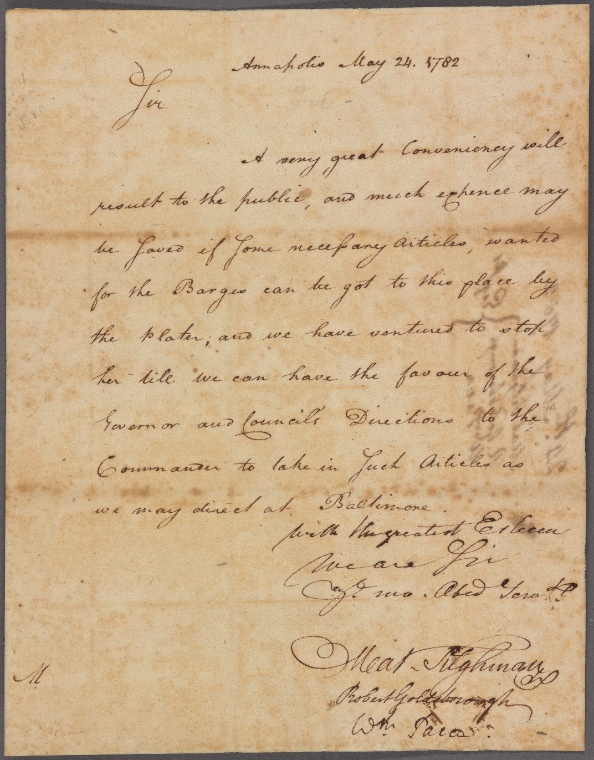 Annapolis May 24. 1782
Sir
A very great Conveniency will
result to the public, and much expence may
be saved if some necessary Articles, wanted
for the Barges can be got to this place by
the Plater; and we have ventured to stop
her till we can have the favour of the
Governor and Council's Directions to the
Commander to take in such Articles as
we may direct at Baltimore.
with the greatest Esteem
We are Sir
Yr. mo. Obed Servts
Matt. Tilghman
Robert Goldsborough
Wm. Paca
M